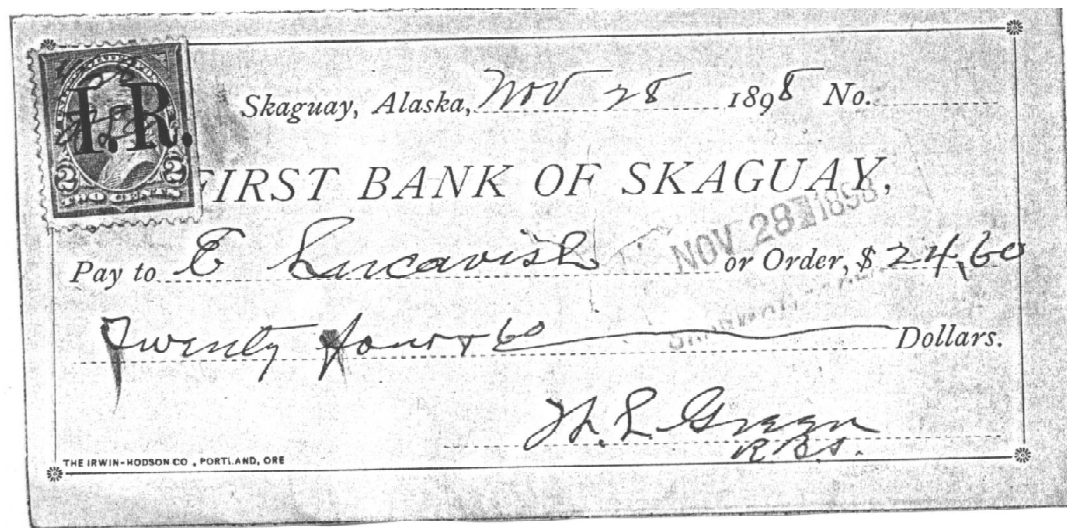 Skaguay, Alaska, Nov 28 1898 No.
I.R.
2 2
TWO CENTS
FIRST BANK OF SKAGUAY,
NOV 28 1898
Pay to E or Order, $ 24,60
Twenty four & 60 Dollars.
Green
R.B.S.
THE IRWIN-HODSON CO., PORTLAND, ORE